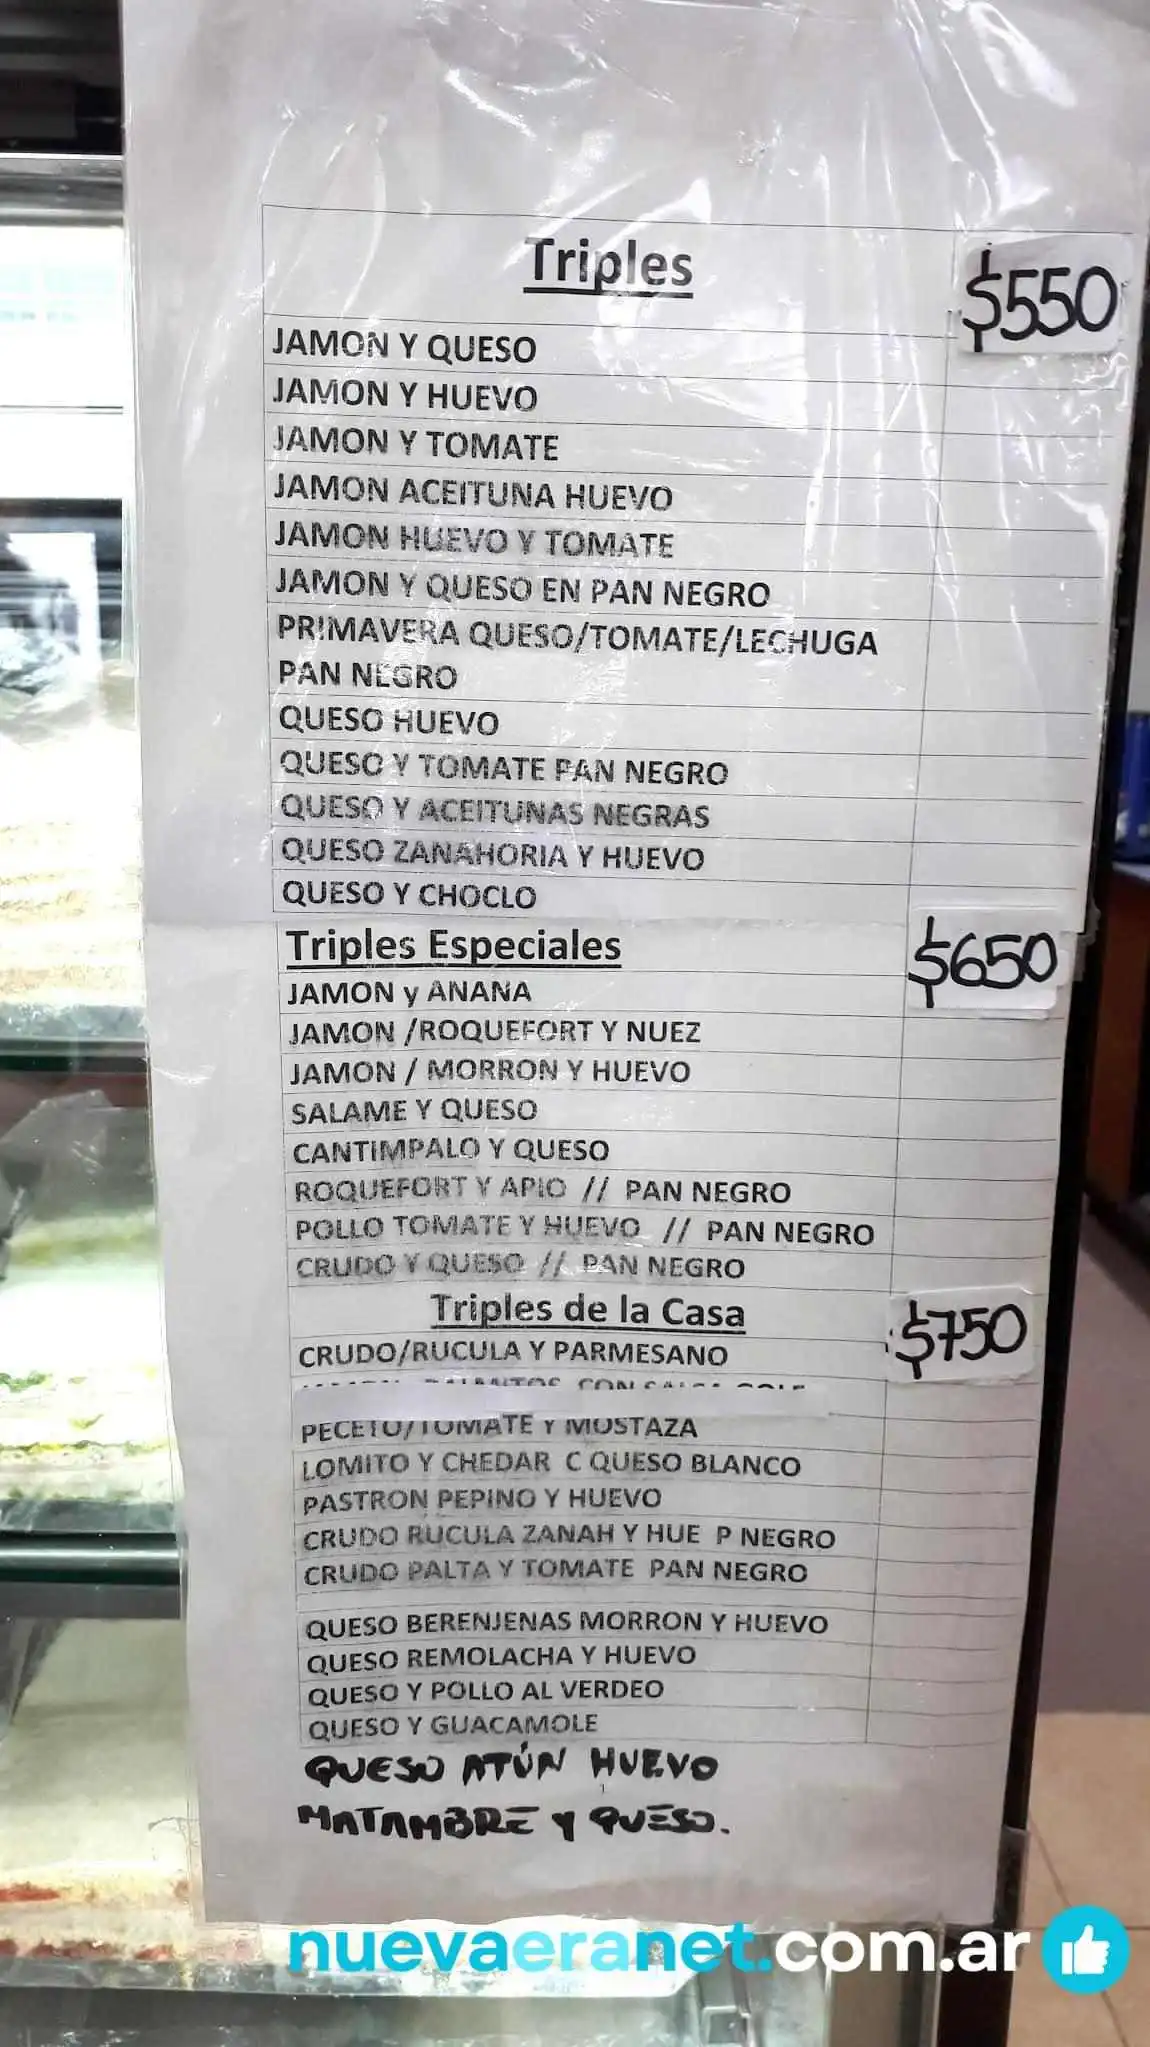 Triples
$550
JAMON Y QUESO
JAMON Y HUEVO
JAMON Y TOMATE
JAMON ACEITUNA HUEVO
JAMON HUEVO Y TOMATE
JAMON Y QUESO EN PAN NEGRO
PRIMAVERA QUESO/TOMATE/LECHUGA
PAN NEGRO
QUESO HUEVO
QUESO Y TOMATE PAN NEGRO
QUESO Y ACEITUNAS NEGRAS
QUESO ZANAHORIA Y HUEVO
QUESO Y CHOCLO
Triples Especiales
$650
JAMON y ANANA
JAMON /ROQUEFORT Y NUEZ
JAMON / MORRON Y HUEVO
SALAME Y QUESO
CANTIMPALO Y QUESO
ROQUEFORT Y APIO // PAN NEGRO
POLLO TOMATE Y HUEVO // PAN NEGRO
CRUDO Y QUESO // PAN NEGRO
Triples de la Casa
$750
CRUDO/RUCULA Y PARMESANO
PECETO/TOMATE Y MOSTAZA
LOMITO Y CHEDAR C QUESO BLANCO
PASTRON PEPINO Y HUEVO
CRUDO RUCULA ZANAH Y HUE P NEGRO
CRUDO PALTA Y TOMATE PAN NEGRO
QUESO BERENJENAS MORRON Y HUEVO
QUESO REMOLACHA Y HUEVO
QUESO Y POLLO AL VERDEO
QUESO Y GUACAMOLE
QUESO ATÚN HUEVO
MATAMBRE Y QUESO.
nuevaeranet.com.ar